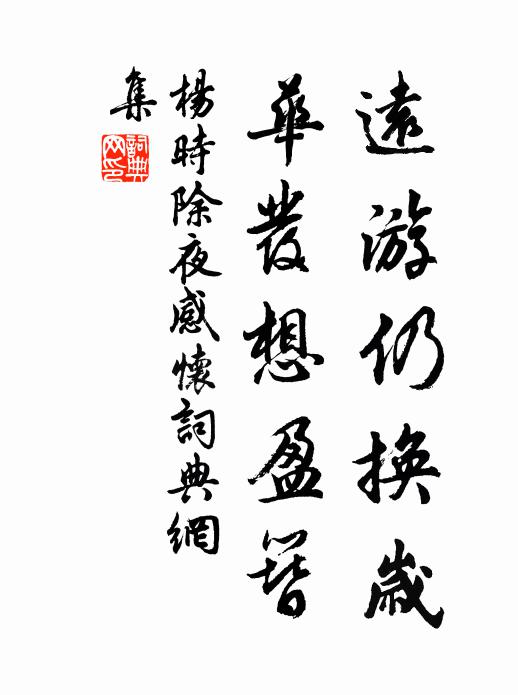 遠游仍換歲
華發想盈簪
楊時除夜感懷詞典網
集
詞典
网印